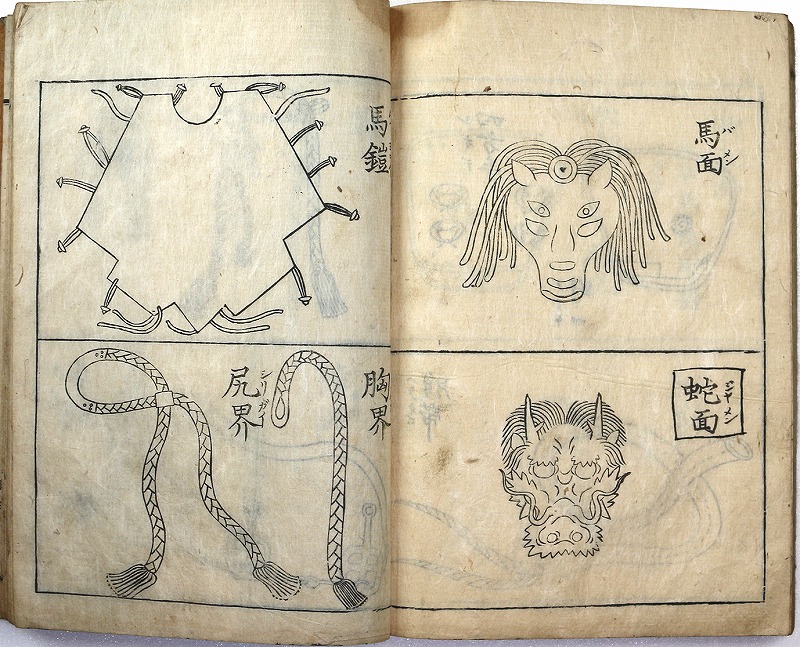 馬面
バメン
蛇面
ジャメン
馬鎧
胸界
尻界
シリガイ